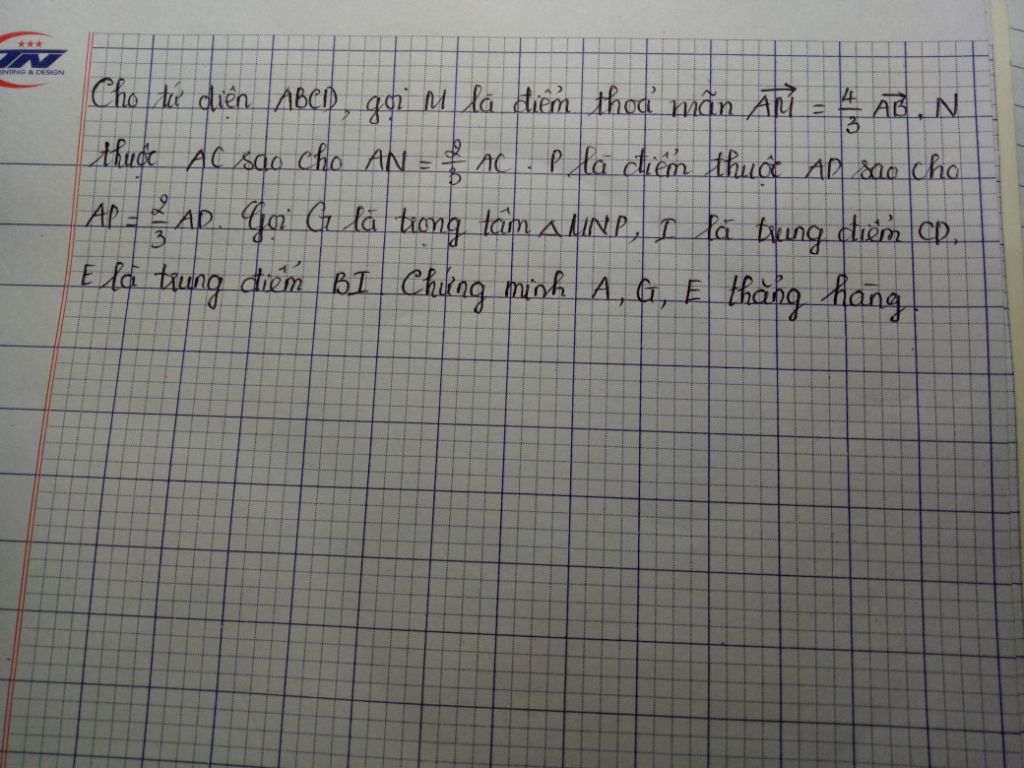 TN
INTING & DESIGN
Cho tứ diện ABCD, gọi M là điểm thoả mãn \overrightarrow{AM} = \frac{4}{3} \overrightarrow{AB}. N
thuộc AC sao cho AN = \frac{2}{3} AC. P là điểm thuộc AD sao cho
AP = \frac{2}{3} AD. Gọi G là trọng tâm △MNP, I là trung điểm CD.
E là trung điểm BI Chứng minh A, G, E thẳng hàng.